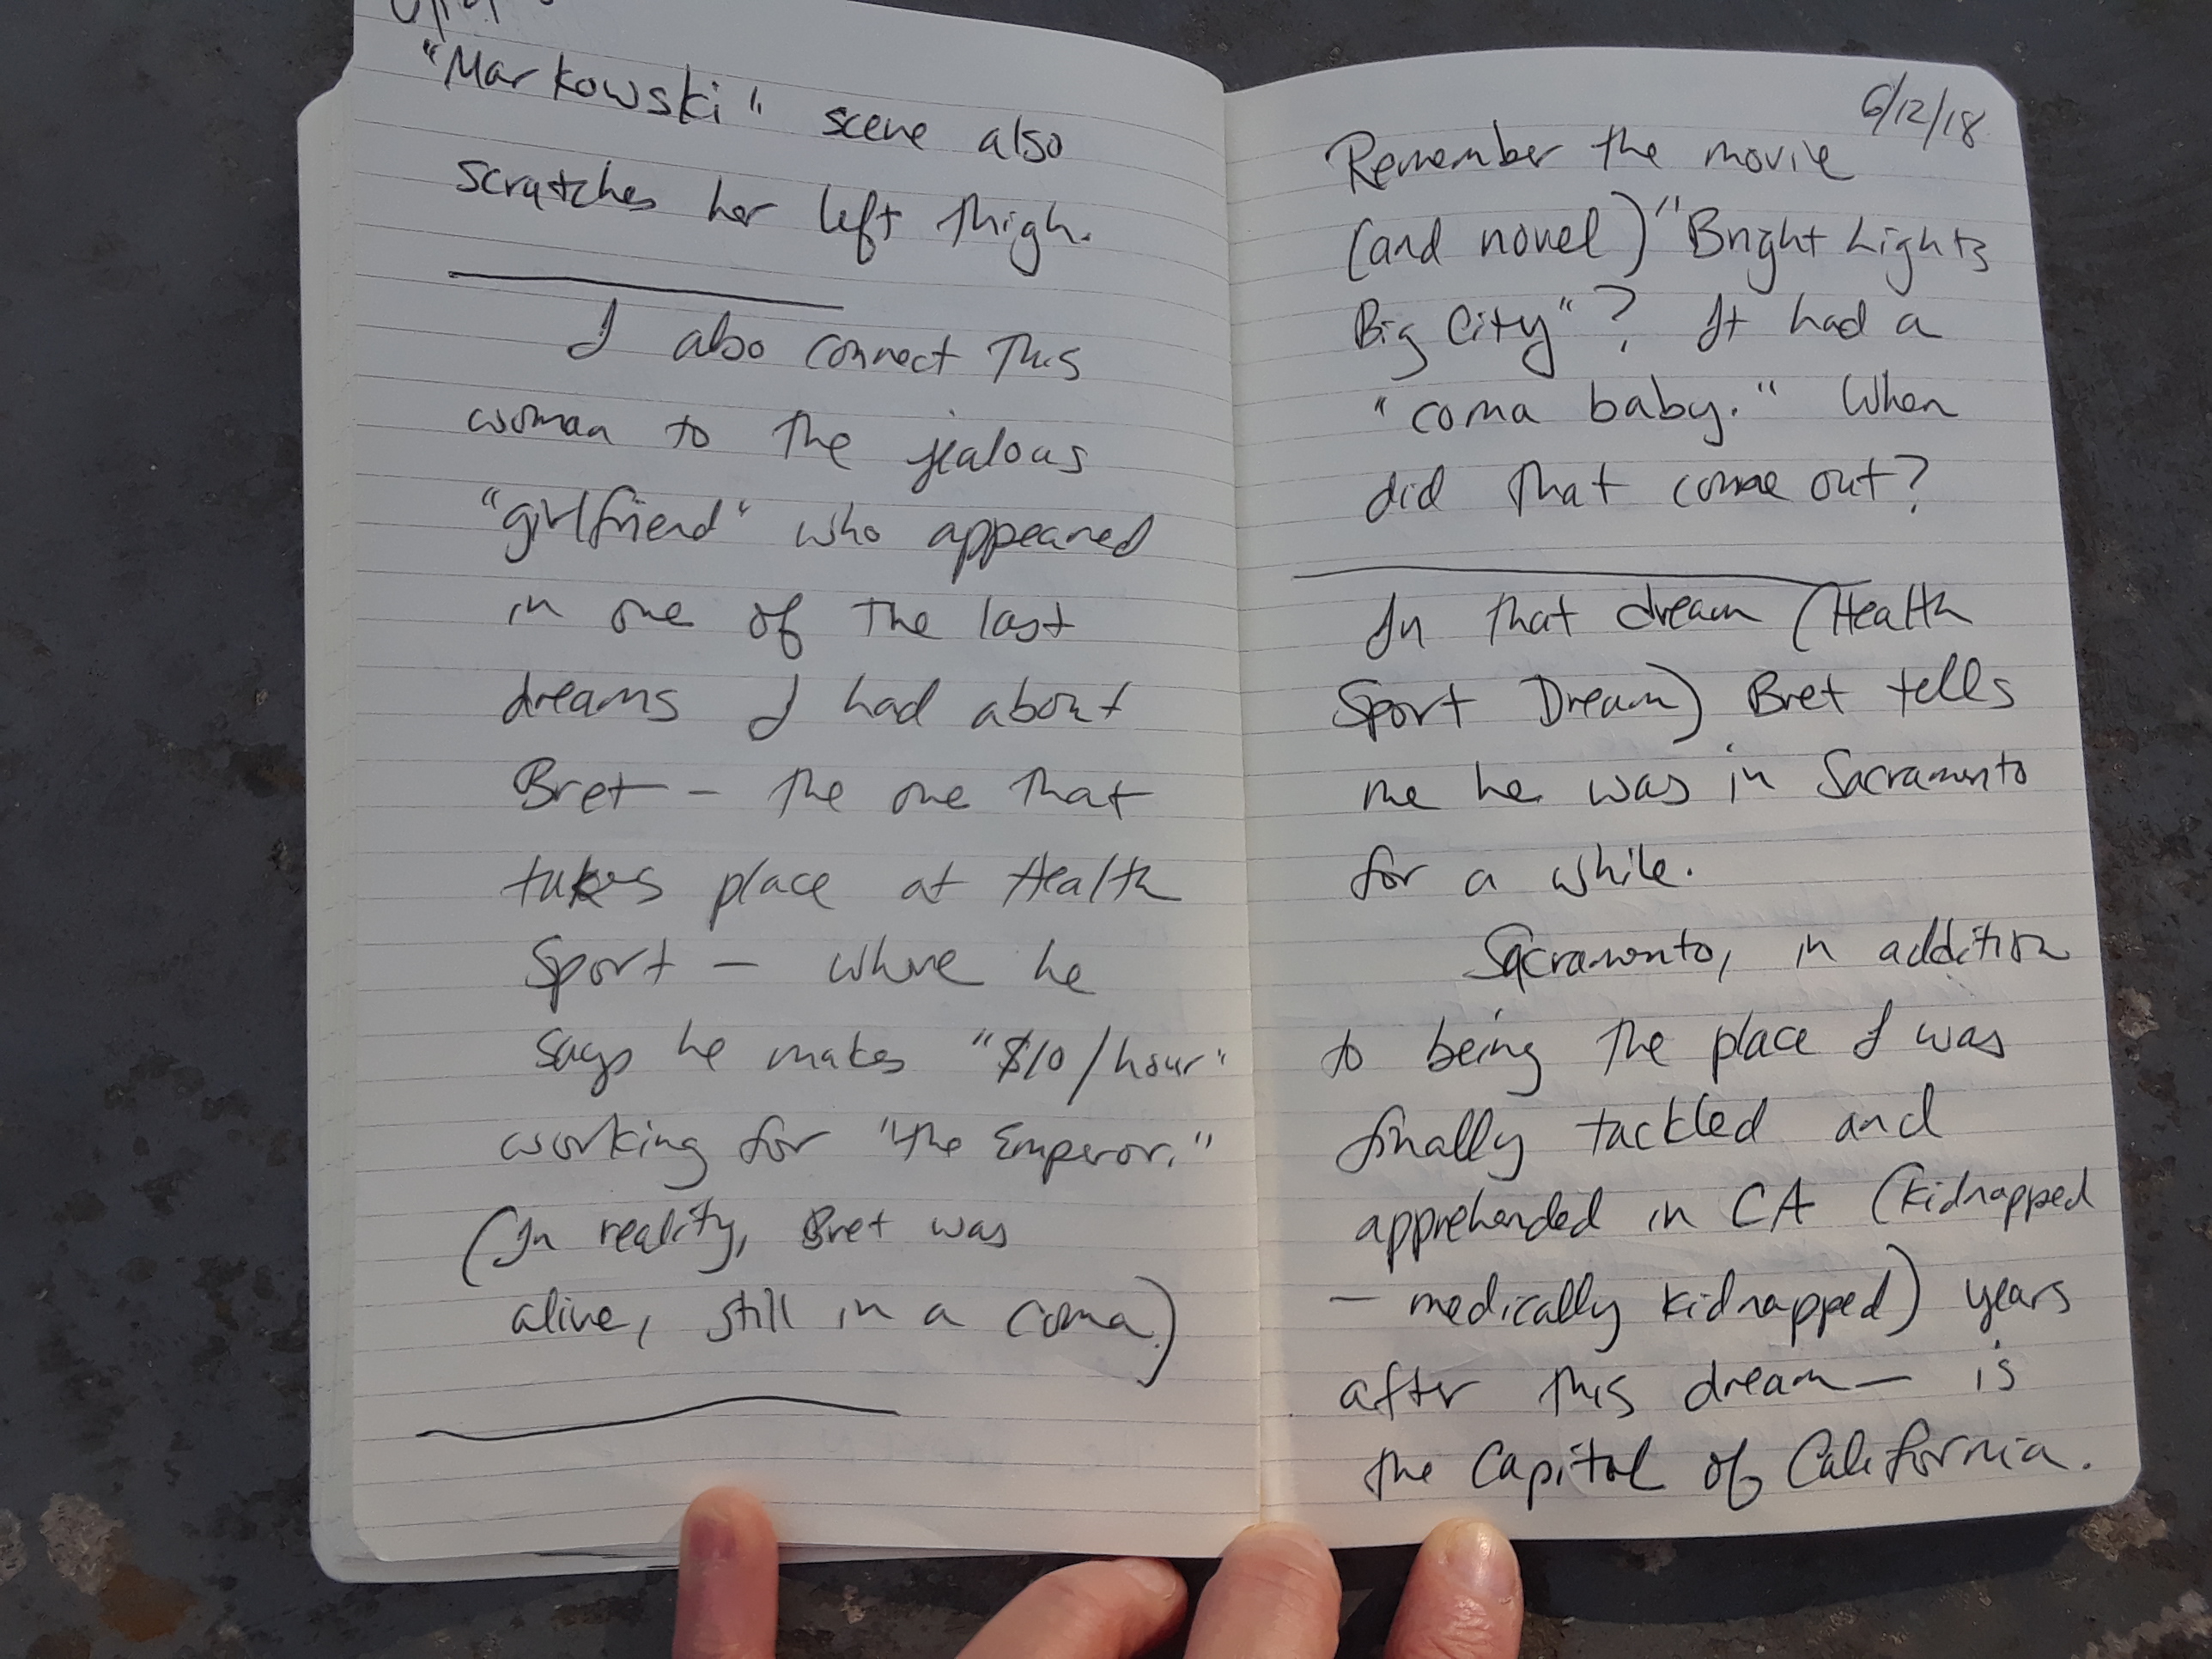 "Markowski" scene also
scratches her left thigh.
I also connect this
woman to the jealous
"girlfriend" who appeared
in one of the last
dreams I had about
Bret - the one that
takes place at Health
Sport - where he
says he makes "$10/hour"
working for "the Emperor."
(In reality, Bret was
alive, still in a coma.)
6/12/18
Remember the movie
(and novel) "Bright Lights
Big City"? It had a
"coma baby." When
did that come out?
In that dream (Health
Sport Dream) Bret tells
me he was in Sacramento
for a while.
Sacramento, in addition
to being the place I was
finally tackled and
apprehended in CA (kidnapped
- medically kidnapped) years
after this dream - is
the Capitol of California.